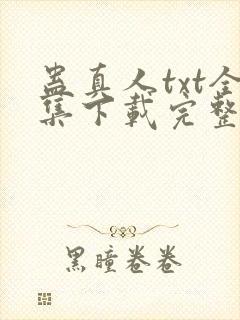 蛊真人txt全
集下载完整
黑瞳卷卷